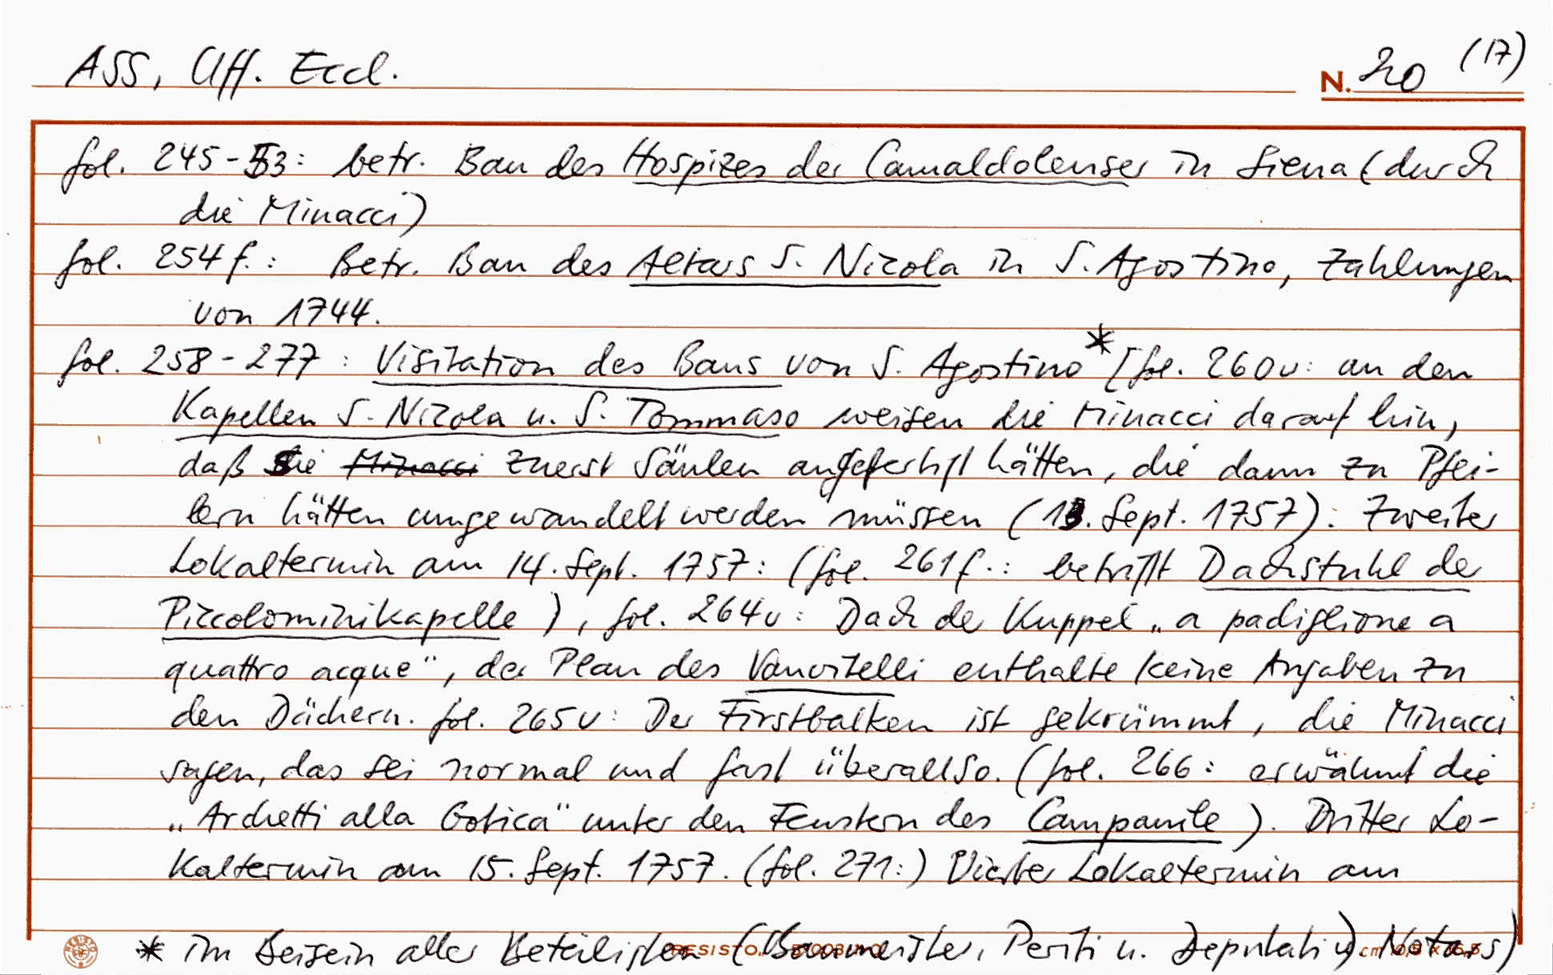 ASS, Uff. Eccl.
N. 20 (17)
fol. 245-53: betr. Bau des Hospizes der Camaldolenser in Siena (durch
die Minacci)
fol. 254f.: Betr. Bau des Altars S. Nicola in S. Agostino, Zahlungen
von 1744.
fol. 258-277: Visitation des Baus von S. Agostino* [fol. 260v: an den
Kapellen S. Nicola u. S. Tommaso weisen die Minacci darauf hin,
daß sie Minacci zuerst Säulen angefertigt hätten, die dann zu Pfei-
lern hätten umgewandelt werden müssen (13. Sept. 1757). Zweiter
Lokaltermin am 14. Sept. 1757: (fol. 261f.: betrifft Dachstuhl der
Piccolominikapelle), fol. 264v: Dach der Kuppel „a padiglione a
quattro acque", der Plan des Vanvitelli enthalte keine Angaben zu
den Dächern. fol. 265v: Der Firstbalken ist gekrümmt, die Minacci
sagen, das sei normal und fast überall so. (fol. 266: erwähnt die
„Archetti alla Gotica" unter den Fenstern des Campanile). Dritter Lo-
kaltermin am 15. Sept. 1757. (fol. 271:) Vierter Lokaltermin am
* im Beisein aller Beteiligten (Baumeister, Periti u. Deputati), Notars)
RESISTO